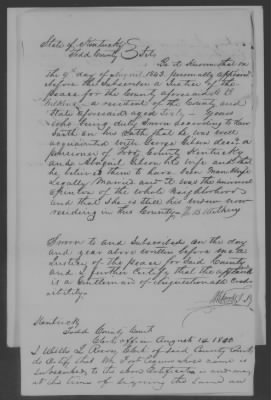 State of Kentucky
Todd County Sct
Be it known that on
the 9th day of August 1843 personally appeared
before the Subscriber a Justice of the
peace for the County aforesaid
a resident of the County and
State aforesaid aged Sixty Years
who being duly Sworn according to law
Saith on his Oath that he was well
acquainted with George Gibson decd a
pensioner of Todd County Kentucky
and Abigail Gibson his wife and that
he believes them to have been Man & wife
Legally Married and it was the universal
opinion of the whole Neighborhood
and that she is still his widow now
residing in this County
Sworn to and Subscribed on the day
and year above written before me a
Justice of the peace for Said County
and I further Certify that the applicant
is a Gentleman of unquestionable Cred-
ibility
Kentucky
Todd County Court
Clerk office August 14 1843
I Willis L Reeves Clerk of Said County Court
do Certify that Wm whose name is
Subscribed to the above Certificate is and was
at the time of Signing the Same an